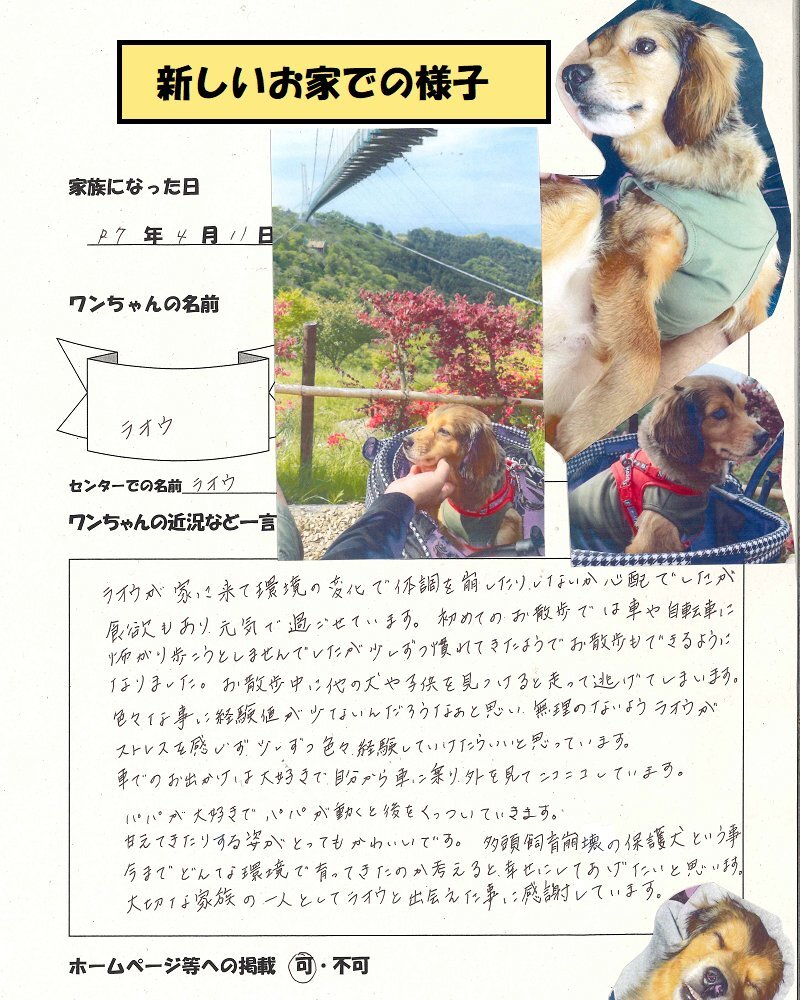 新しいお家での様子
家族になった日
R7 年 4 月 11 日
ワンちゃんの名前
ラオウ
センターでの名前 ラオウ
ワンちゃんの近況など一言
ラオウが家に来て環境の変化で体調を崩したりしないか心配でしたが
食欲もあり、元気で過ごせています。初めてのお散歩では車や自転車に
怖がり歩こうとしませんでしたが少しずつ慣れてきたようでお散歩もできるように
なりました。お散歩中に他の犬や子供を見つけると走って逃げてしまいます。
色々な事に経験値が少ないんだろうなぁと思い、無理のないようラオウが
ストレスを感じず、少しずつ色々経験していけたらいいと思っています。
車でのお出かけは大好きで自分から車に乗り、外を見てニコニコしています。
パパが大好きでパパが動くと後をくっついていきます。
甘えてきたりする姿がとってもかわいいです。 多頭飼育崩壊の保護犬という事
今までどんな環境で育ってきたのか考えると幸せにしてあげたいと思います。
大切な家族の一人としてラオウと出会えた事に感謝しています。
ホームページ等への掲載 可・不可